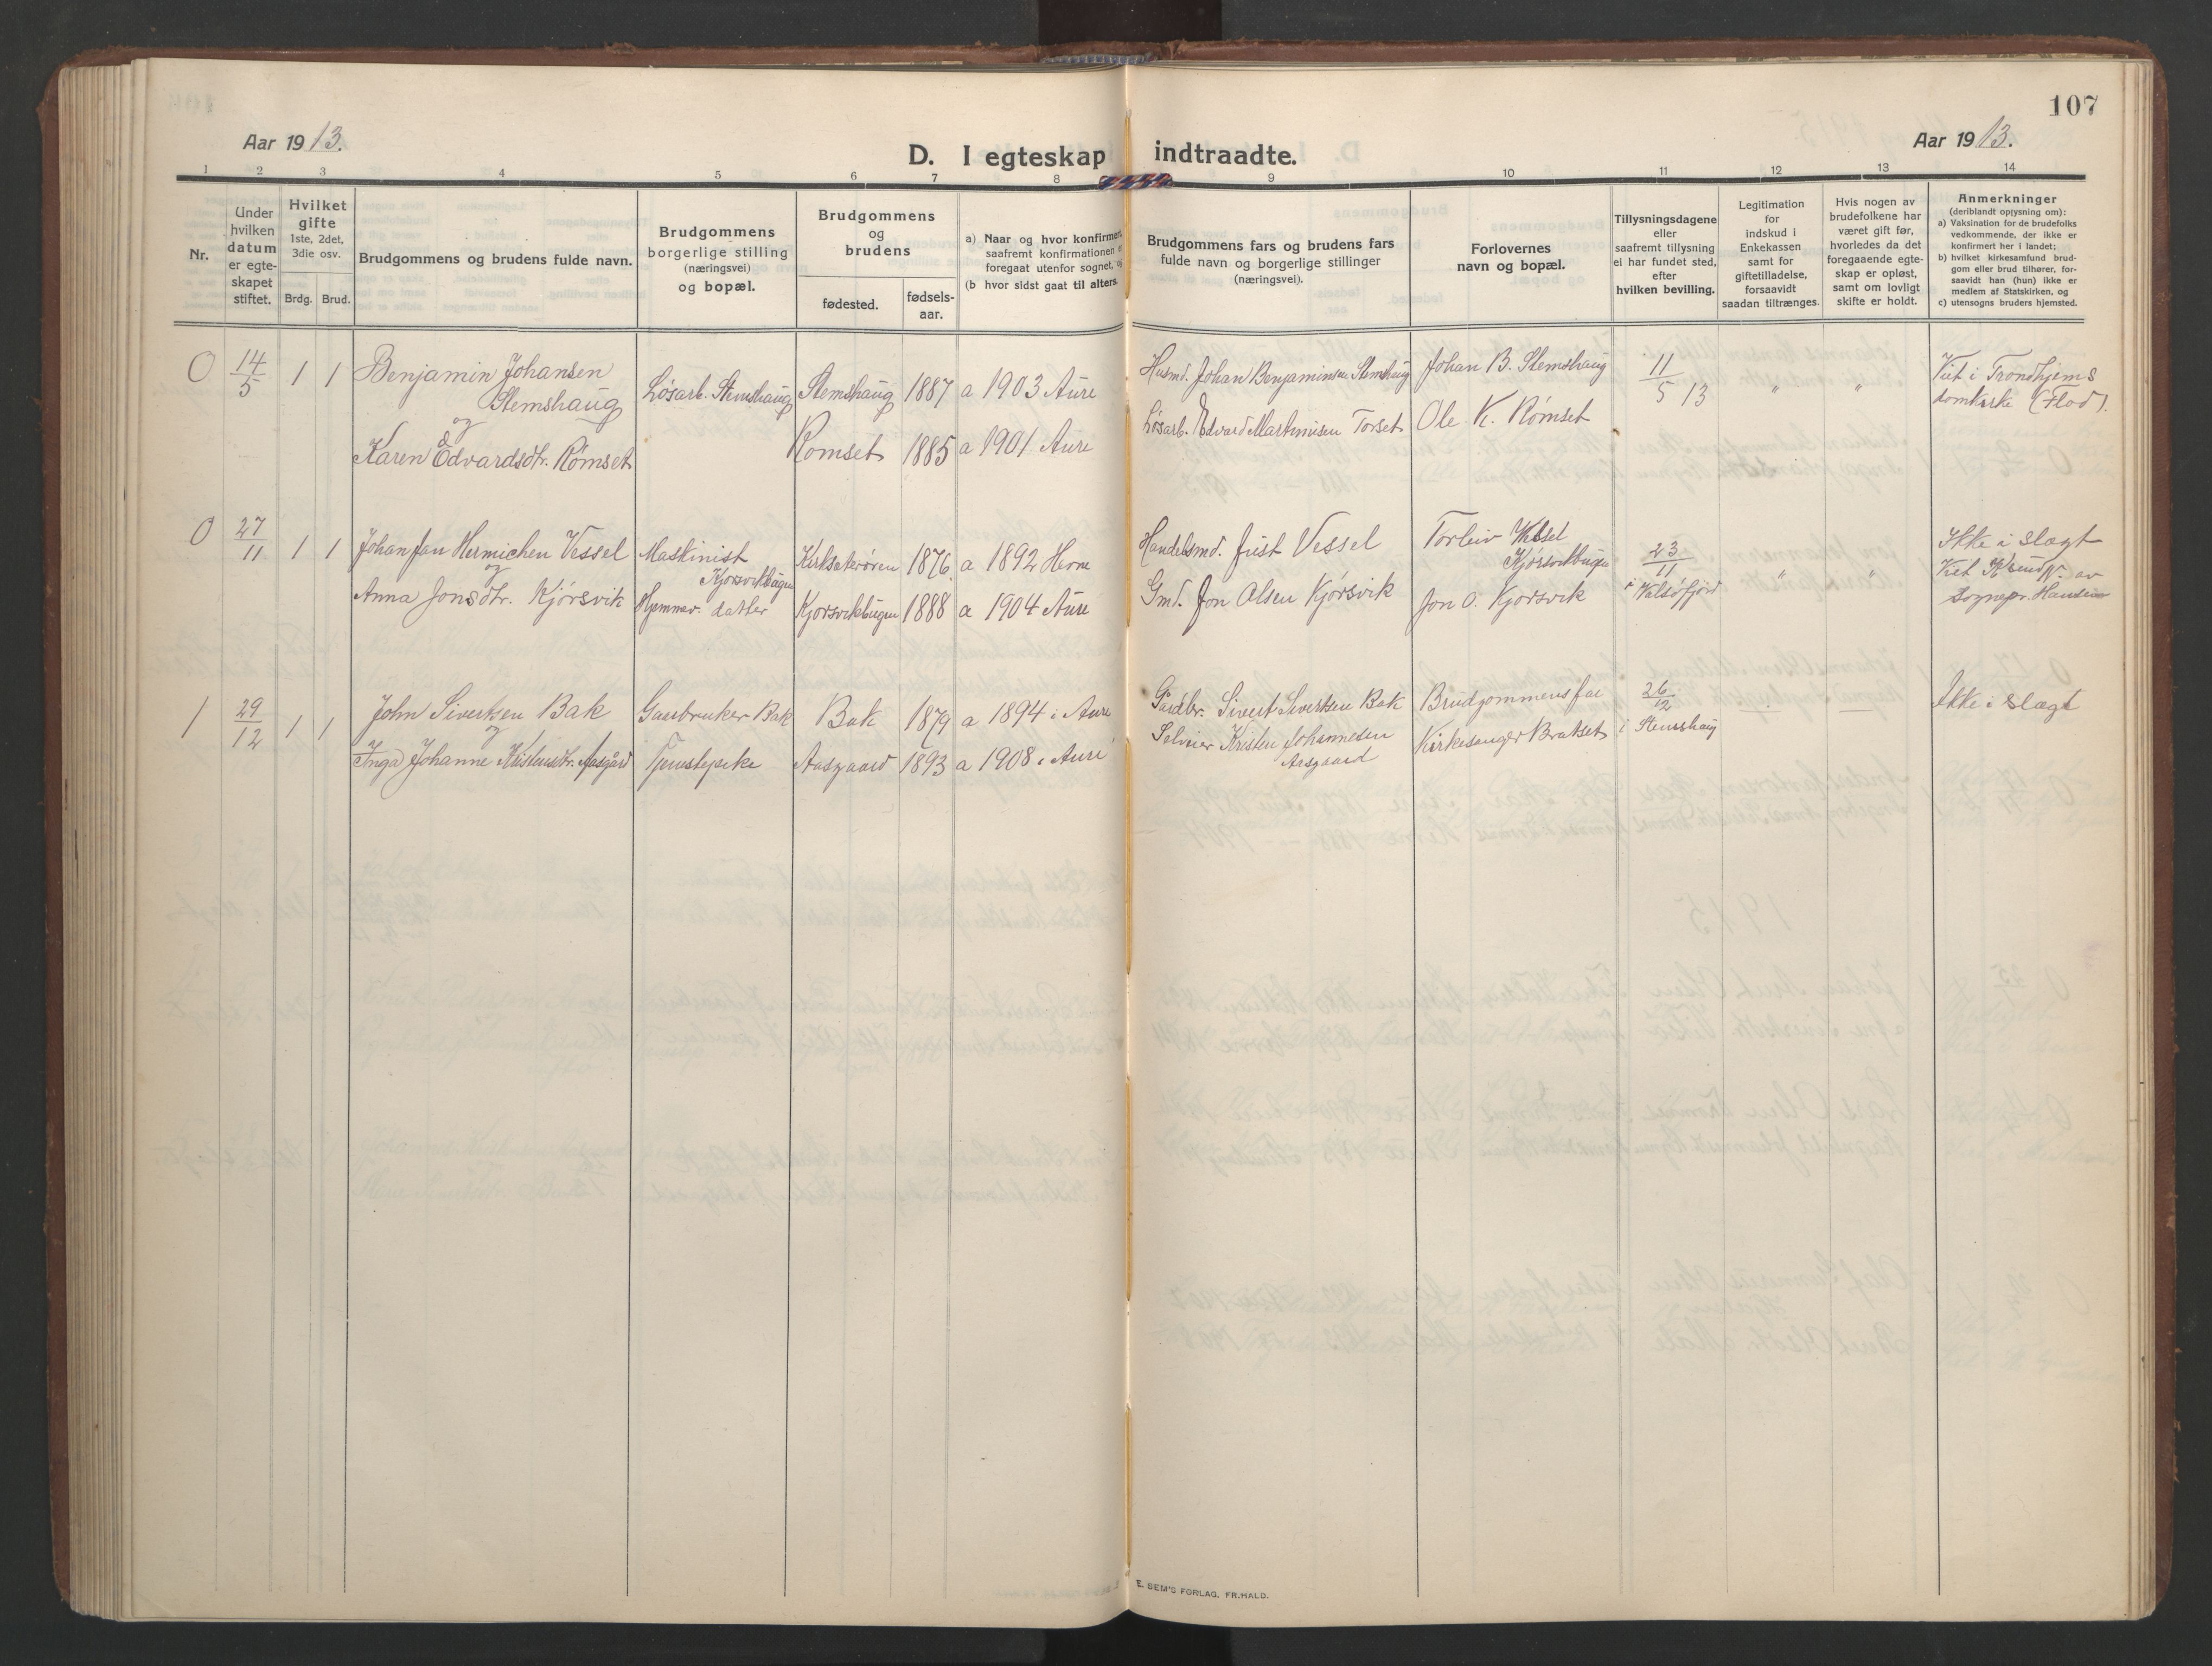 107
Aar 1913.
Aar 1913.
D. I egteskap indtraadte.
1 2 3 4 5 6 7 8 9 10 11 12 13 14
Nr.
Under
hvilken
datum
er egte-
skapet
stiftet.
Hvilket
gifte
1ste, 2det,
3die osv.
Brdg. Brud.
Brudgommens og brudens fulde navn.
Brudgommens
borgerlige stilling
(næringsvei)
og bopæl.
Brudgommens
og
brudens
fødested.
fødsels-
aar.
a) Naar og hvor konfirmert,
saafremt konfirmationen
foregaat utenfor sognet,
(b hvor sidst gaat til alters.
Brudgommens fars og brudens fars
fulde navn og borgerlige stillinger
(næringsvei).
Forlovernes
navn og bopæl.
Tillysningsdagene
eller
saafremt tillysning
ei har fundet sted,
efter
hvilken bevilling.
Legitimation
for
indskud i
Enkekassen
samt for
giftetilladelse,
forsaavidt
saadan tiltrænges.
Hvis nogen av
brudefolkene har
været gift før,
hvorledes da det
foregaaende egte-
skap er opløst,
samt om lovligt
skifte er holdt.
Anmerkninger
(deriblandt opjysning om):
a) Vaksination for de brudefolks
vedkommende, der ikke er
konfirmert her i landet;
b) hvilket kirkesamfund brud-
gom eller brud tilhører, for-
saavidt han (hun) ikke er
medlem af Statskirken, og
c) utensogns bruders hjemsted.
0 14/5 1 1 Benjamin Johansen
Stemshaug
og
Karen Edvardsdtr. Rømset
Løsarb. Stemshaug
Stemshaug 1887 a 1903 Aure
Romset 1885 a 1901 Aure
Husmd. Johan Benjaminsen Stemshaug
Løsarb. Edvard Martinusen Torset
Johan B. Stemshaug
Ole K. Rømset
11/5 13
" "
Viet i Trondhjems
domkirke (Flod).
0 27/11 1 1 Johan Jan Hermichen Vessel
og
Anna Jonsdtr. Kjørsvik
Maskinist
Kjorsvikbugen
Hjemmev. datter
Kirksæterøren 1876 a 1892 Herne
Kjorsvikbugen 1888 a 1904 Aure
Handelsmd. Just Vessel
Gmd. Jon Olsen Kjørsvik
Torleiv Wessel
Kjørsvikbugen
Jon O. Kjorsvik
23/11
i Valsøfjord
" "
Ikke i slægt
Viet Kr.sund N. av
Sognepr. Hansen
1 29/12 1 1 John Sivertsen Bak
og
Inga Johanne Kristensdtr. Aasgård
Gaarbruker Bak
Tjenstepike
Bak 1879 a 1894 i Aure
Aasgaard 1893 a 1908 i Aure
Gardbr. Sivert Sivertsen Bak
Selveier Kristen Johannesen
Aasgaard
Brudgommens far
Kirkesanger Brakset
26/12
i Stemshaug
Ikke i slægt
E. SEM'S FORLAG, FR.HALD.